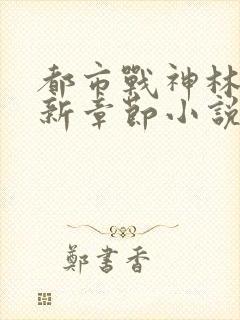 都市戰神林
新章節小說
鄭書香